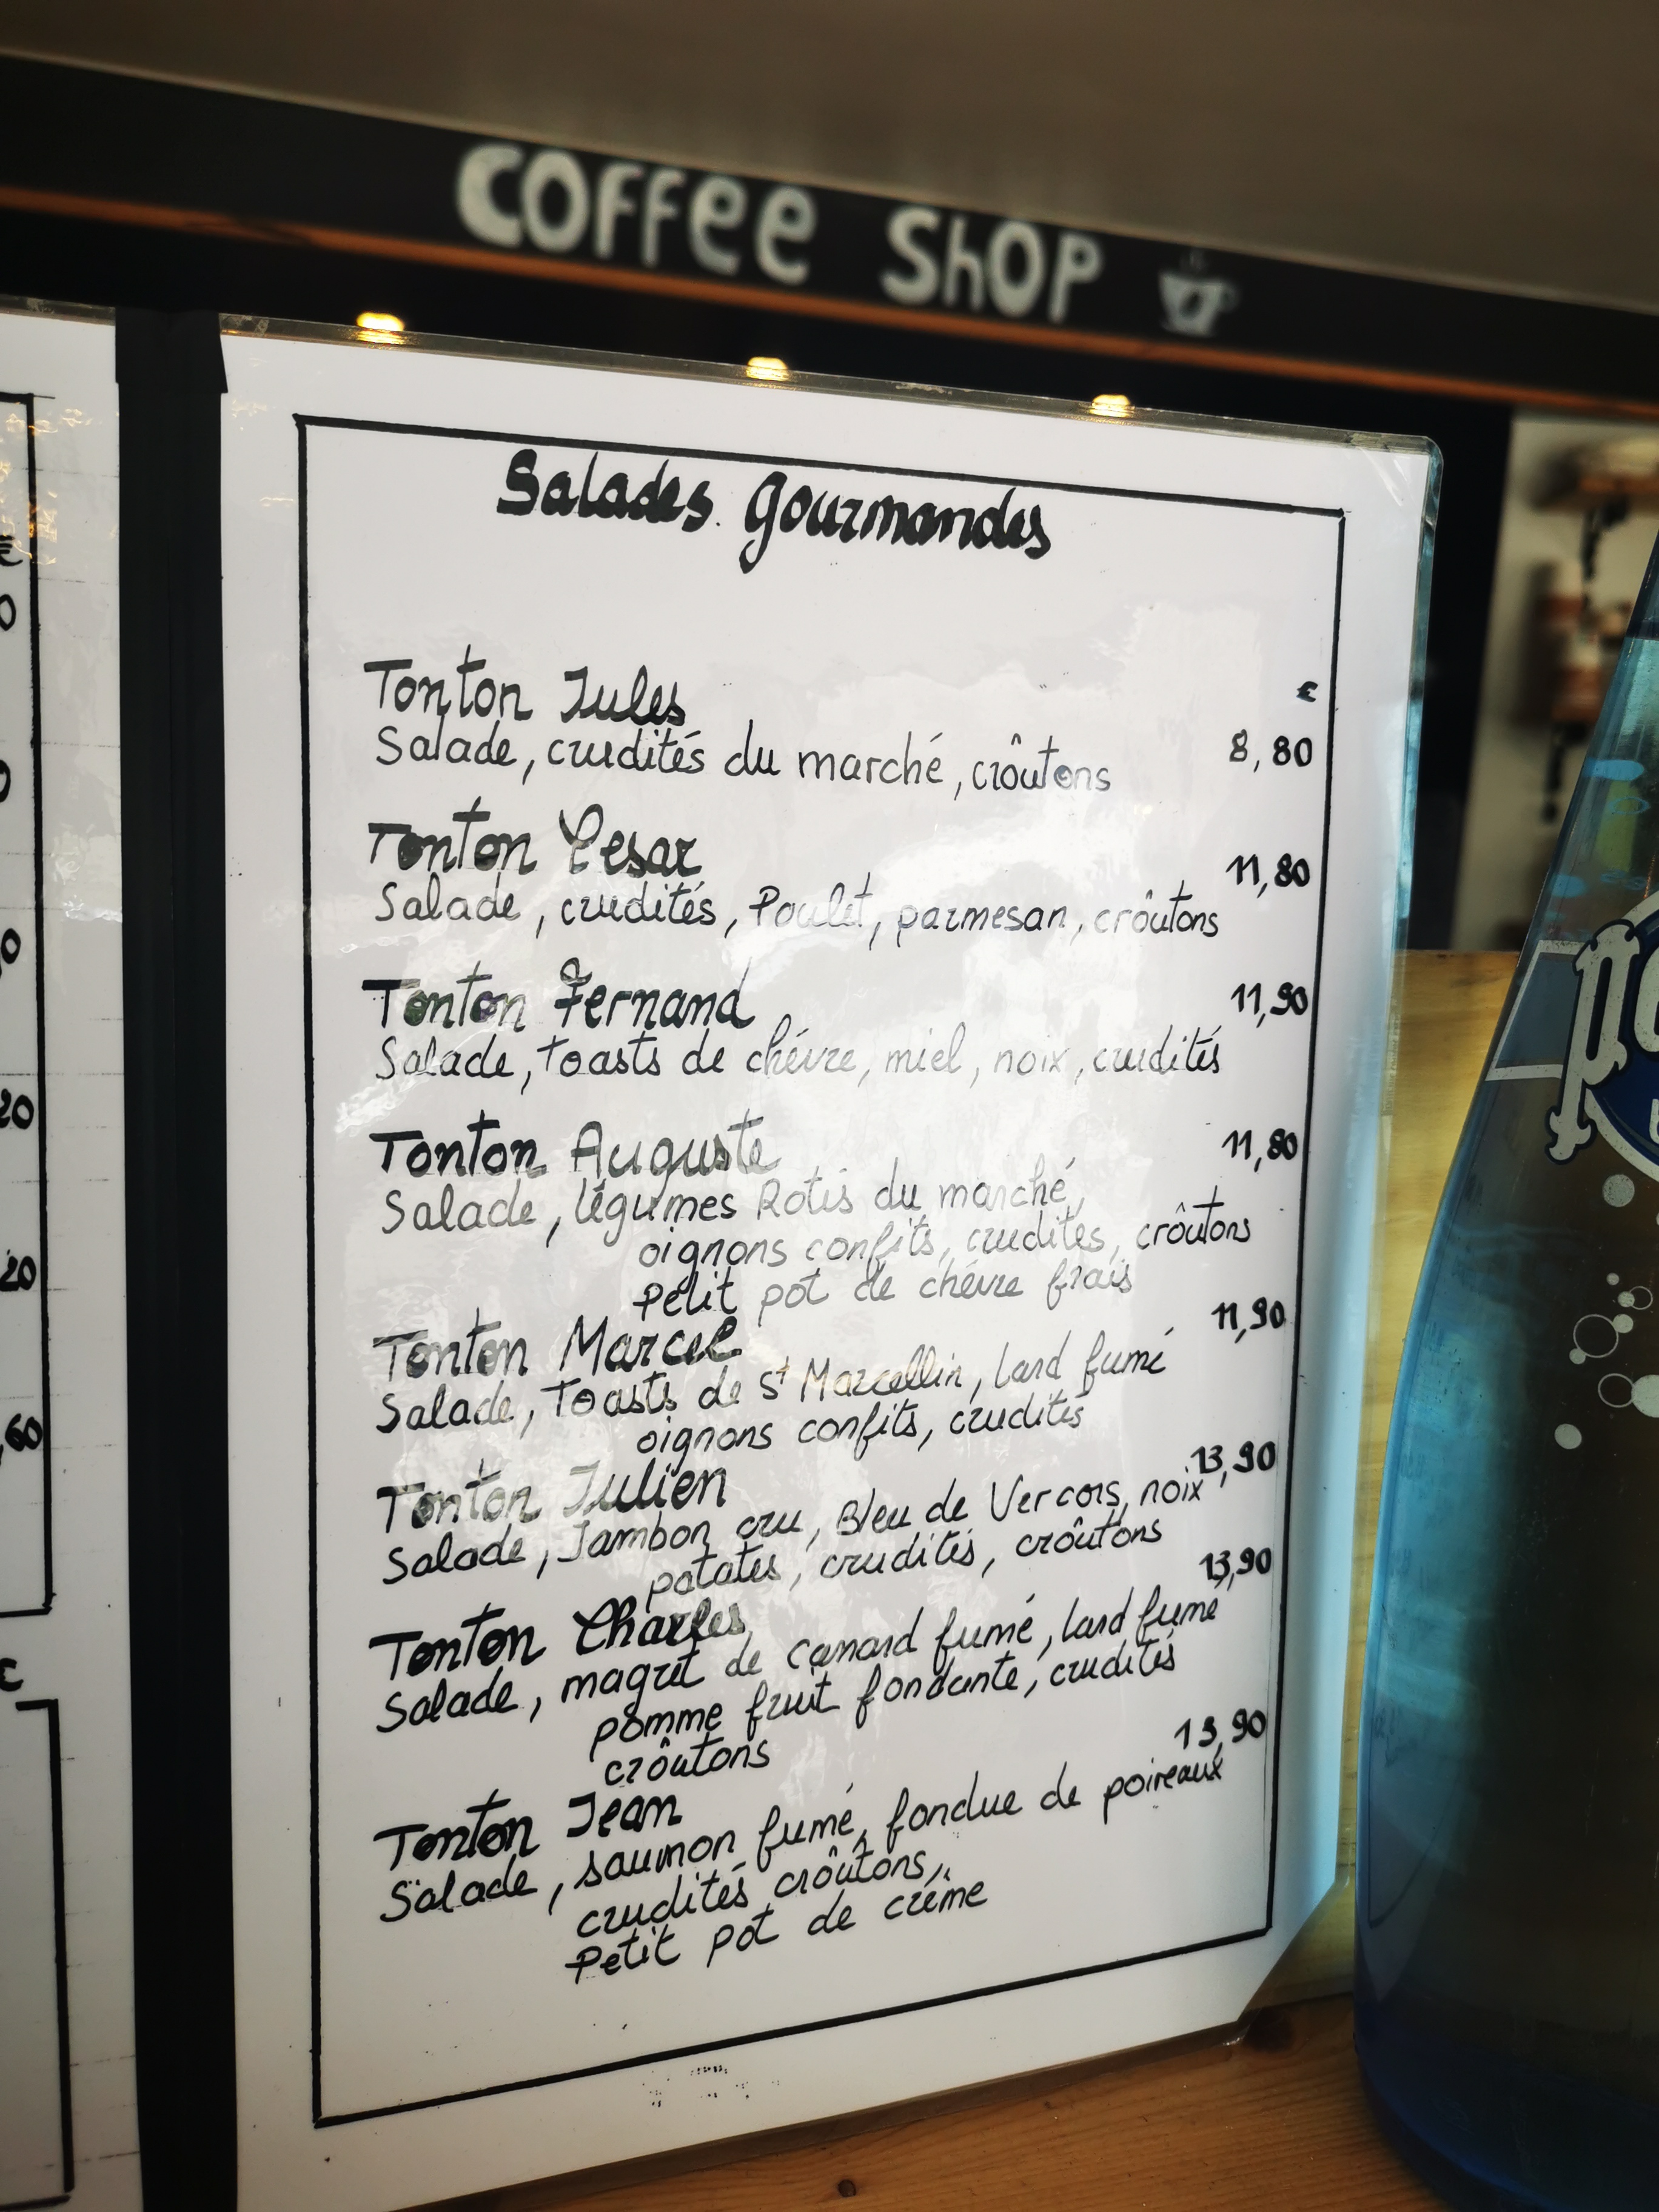 COFFEE SHOP
Salades Gourmandes
€
Tonton Jules
Salade, crudités du marché, croûtons 8,80
Tonton Cesar 11,80
Salade, crudités, Poulet, parmesan, crôutons
Tonton Fernand 11,90
Salade, toasts de chévre, miel, noix, crudités
Tonton Auguste 11,80
Salade, légumes Rotis du marché,
oignons confits, crudités, crôutons
Petit pot de chévre frais
Tonton Marcel 11,90
Salade, Toasts de St Marcellin, lard fumé
oignons confits, crudités
Tonton Julien 13,90
Salade, Jambon cru, Bleu de Vercors, noix
patates, crudités, croûtons
Tonton Charles 13,90
Salade, magret de canard fumé, lard fumé
pomme fruit fondante, crudités
crôutons
Tonton Jean 13,90
Salade, saumon fumé, fondue de poireaux
crudités, croûtons,
Petit pot de crème
€
20
20
,60
€